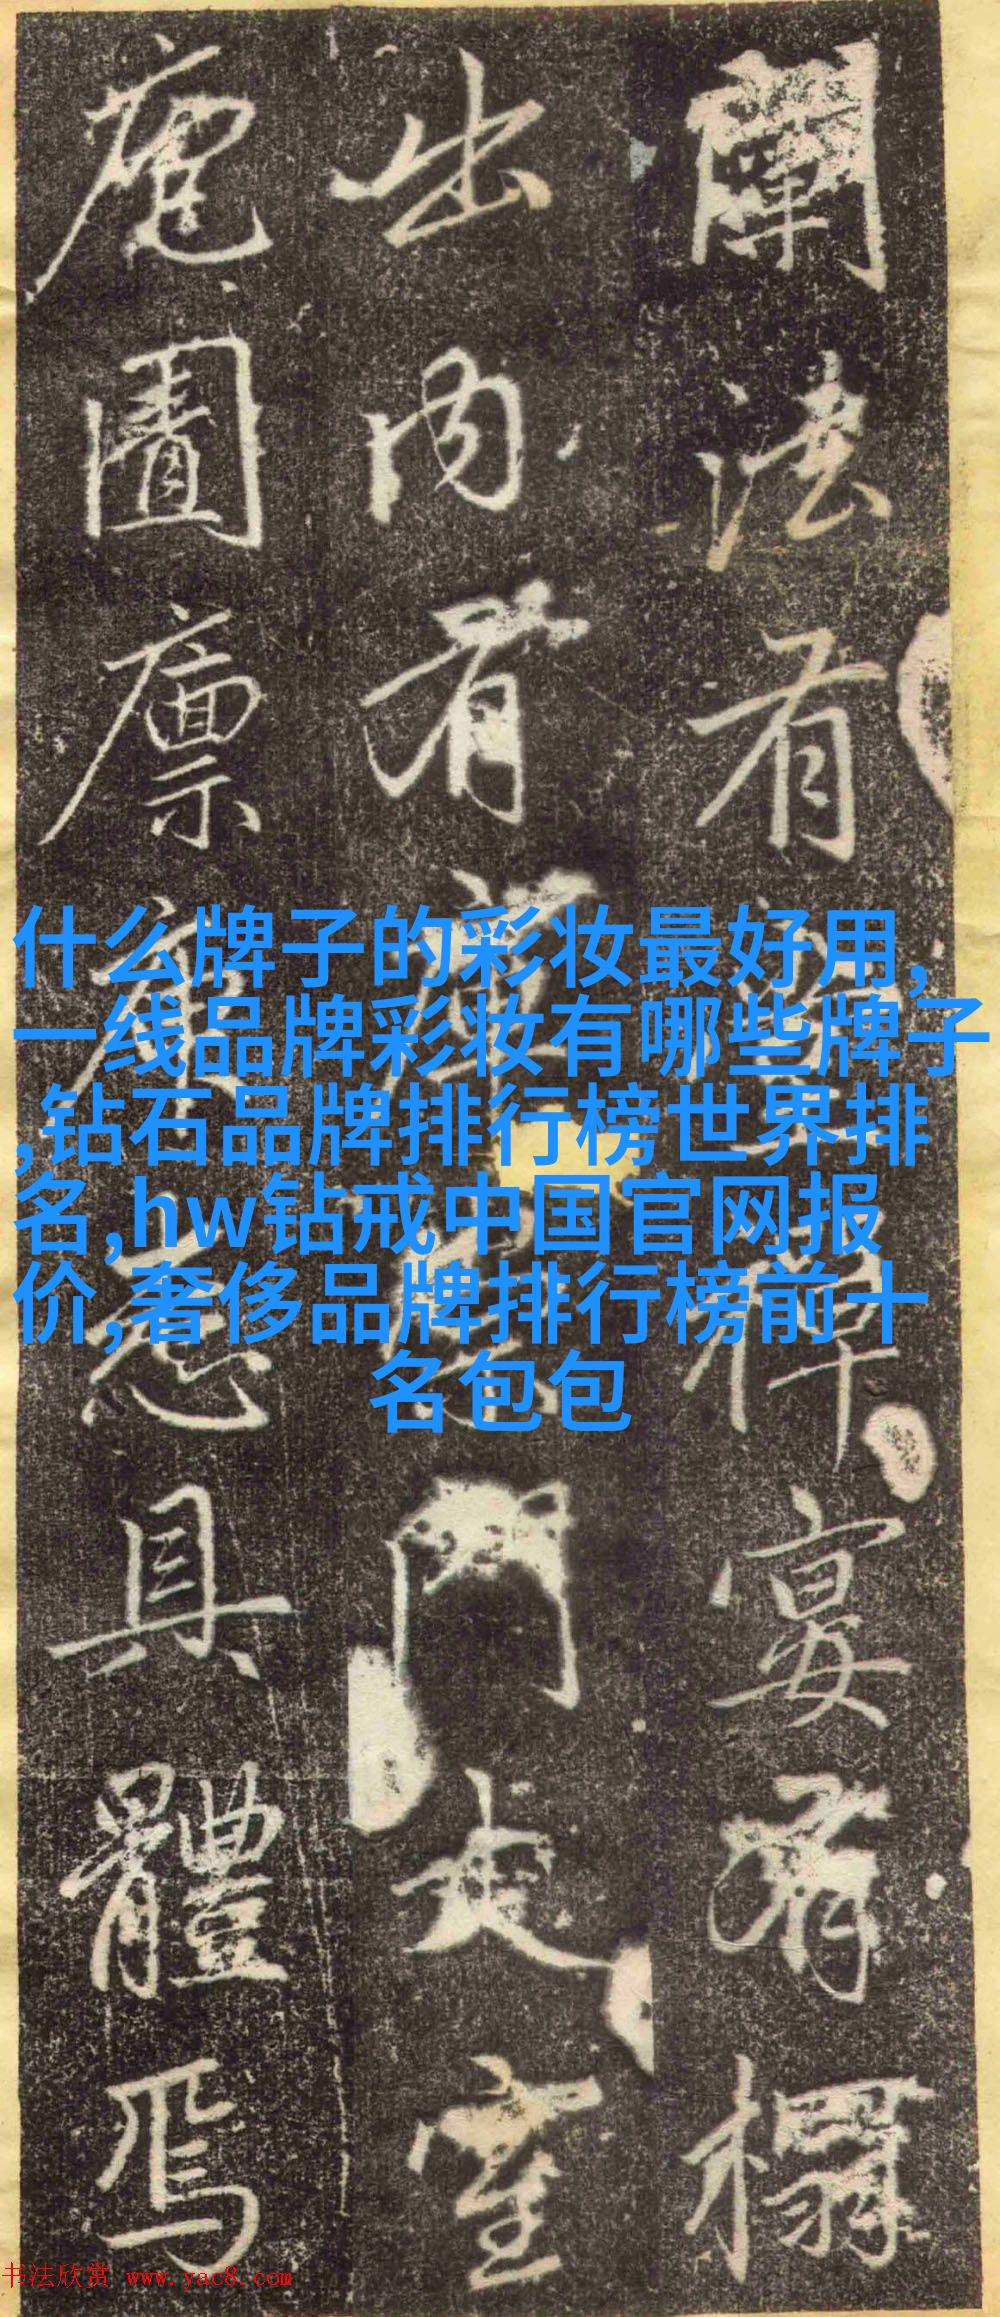 闡法有
禪宴有榻
出內有
門走室
庖圊廪
具體焉
什么牌子的彩妆最好用,
一线品牌彩妆有哪些牌子
,钻石品牌排行榜世界排
名,hw钻戒中国官网报
价,奢侈品牌排行榜前十
名包包
书法欣赏 www.yac8.com